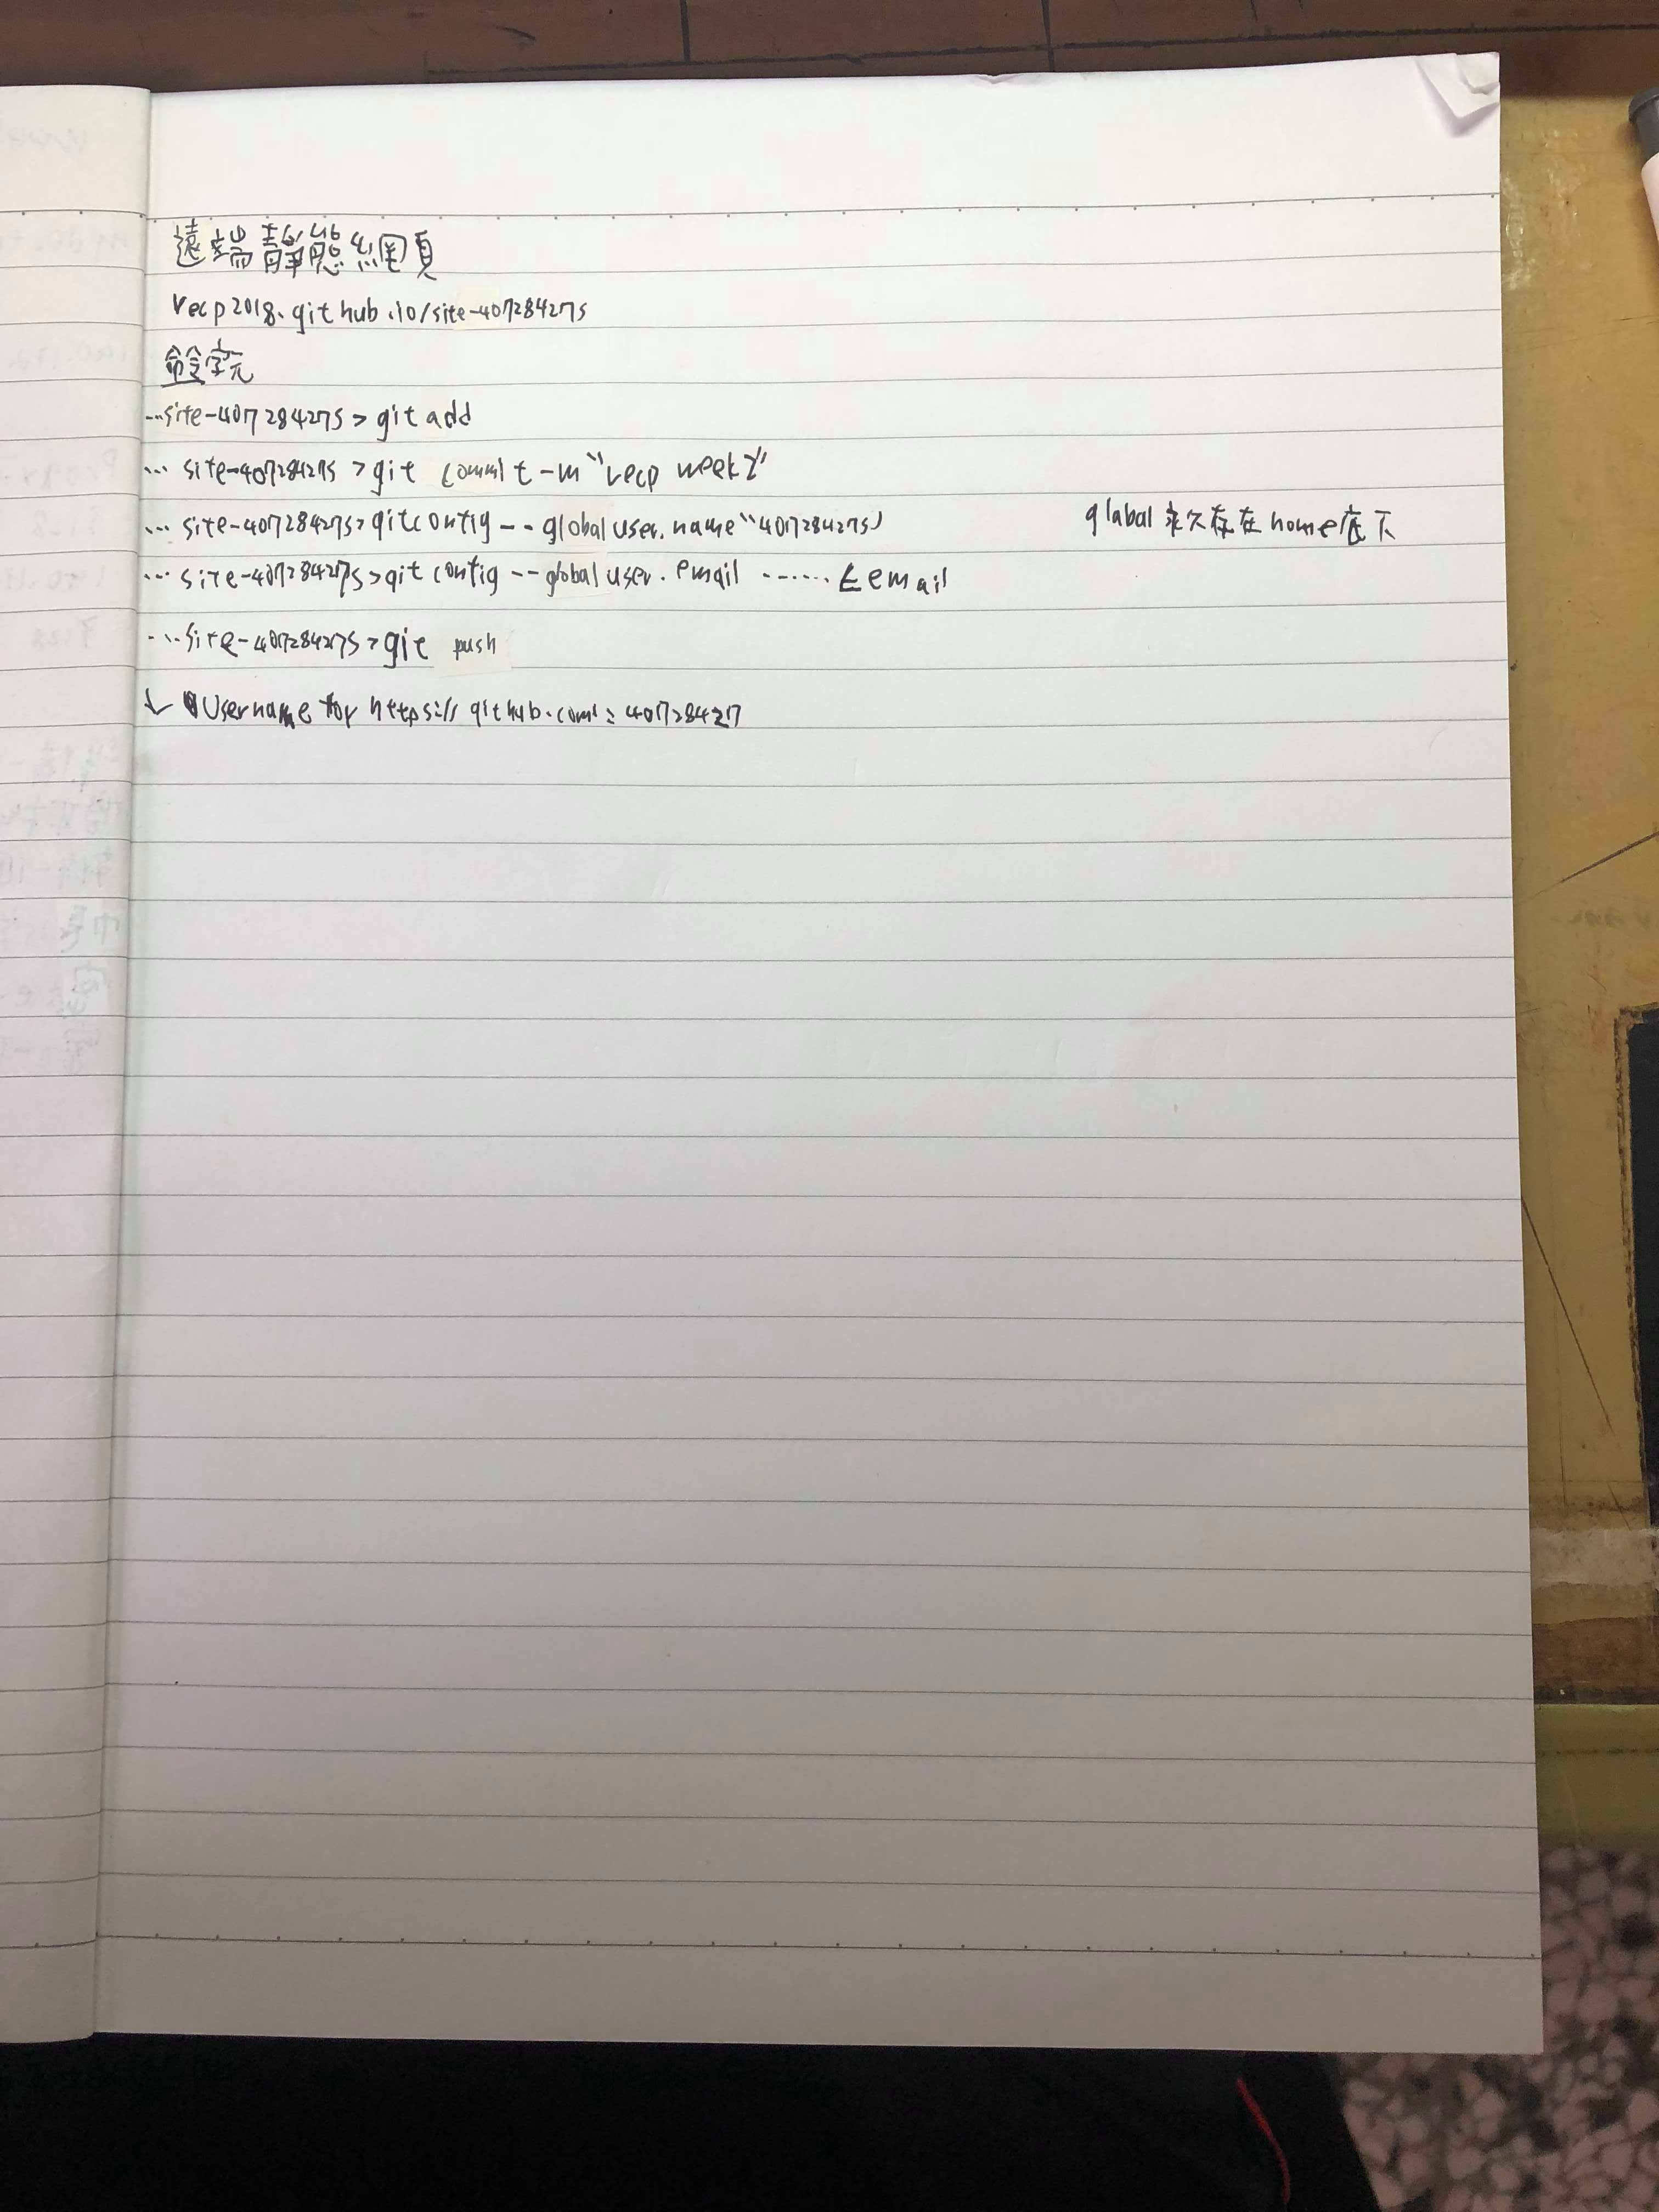 遠端靜態網頁
vecp2018.github.io/site-40728427s
命令字元
...site-40728427s > git add
... site-40728427s > git commit -m "vecp week 2"
... site-40728427s > git config -- global user.name "40728427s) glabal 永久存在home底下
... site-40728427s > git config -- global user.email ...... ← email
...site-40728427s > git push
↓ Username for https://github.com: 40728427